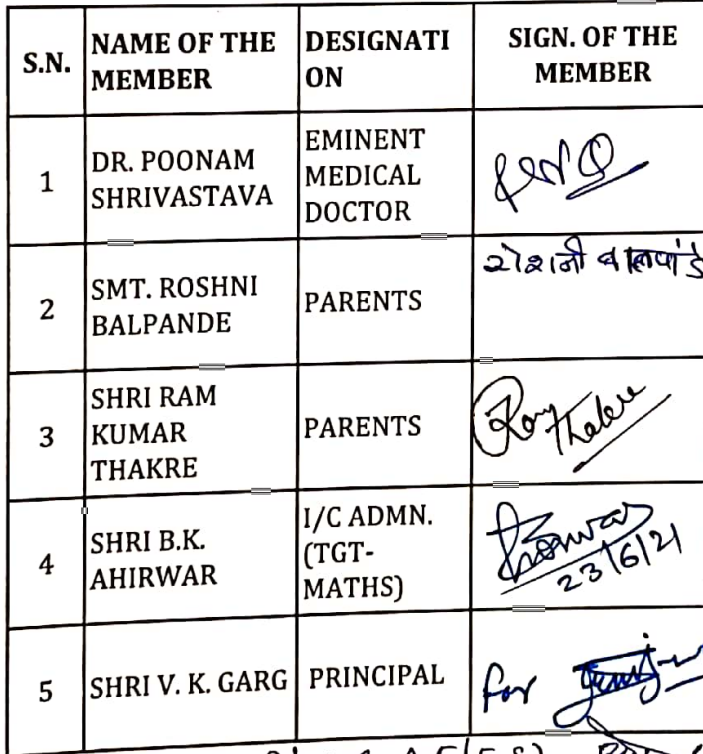 S.N. NAME OF THE MEMBER DESIGNATI ON SIGN. OF THE MEMBER
1 DR. POONAM SHRIVASTAVA EMINENT MEDICAL DOCTOR
2 SMT. ROSHNI BALPANDE PARENTS रोशनी बालपांडे
3 SHRI RAM KUMAR THAKRE PARENTS Ram Thakre
4 SHRI B.K. AHIRWAR I/C ADMN. (TGT- MATHS) 23/6/21
5 SHRI V. K. GARG PRINCIPAL for